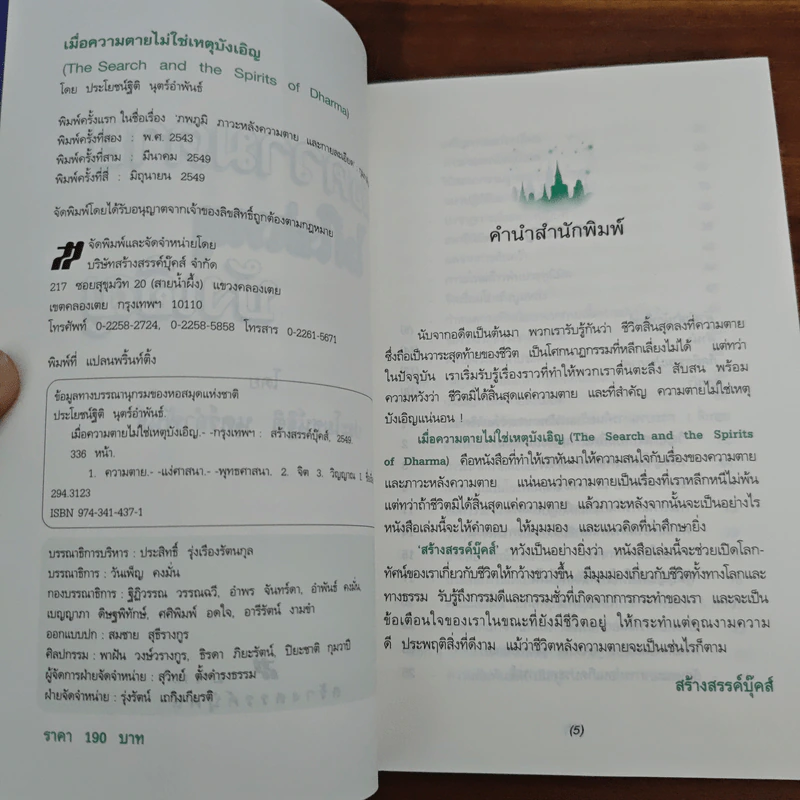 เมื่อความตายไม่ใช่เหตุบังเอิญ
(The Search and the Spirits of Dharma)
โดย ประโยชน์ฐิติ นุตร์อำพันธ์
พิมพ์ครั้งแรก ในชื่อเรื่อง 'ภพภูมิ ภาวะหลังความตาย และกายละเอียด'
พิมพ์ครั้งที่สอง : พ.ศ. 2543
พิมพ์ครั้งที่สาม : มีนาคม 2549
พิมพ์ครั้งที่สี่ : มิถุนายน 2549
จัดพิมพ์โดยได้รับอนุญาตจากเจ้าของลิขสิทธิ์ถูกต้องตามกฎหมาย
จัดพิมพ์และจัดจำหน่ายโดย
บริษัทสร้างสรรค์บุ๊คส์ จำกัด
217 ซอยสุขุมวิท 20 (สายน้ำผึ้ง) แขวงคลองเตย
เขตคลองเตย กรุงเทพฯ 10110
โทรศัพท์ 0-2258-2724, 0-2258-5858 โทรสาร 0-2261-5671
พิมพ์ที่ แปลนพริ้นท์ติ้ง
ข้อมูลทางบรรณานุกรมของหอสมุดแห่งชาติ
ประโยชน์ฐิติ นุตร์อำพันธ์.
เมื่อความตายไม่ใช่เหตุบังเอิญ.- -กรุงเทพฯ : สร้างสรรค์บุ๊คส์, 2549.
336 หน้า.
1. ความตาย.- -แง่ศาสนา.- -พุทธศาสนา. 2. จิต 3. วิญญาณ I.
294.3123
ISBN 974-341-437-1
บรรณาธิการบริหาร : ประสิทธิ์ รุ่งเรืองรัตนกุล
บรรณาธิการ : วันเพ็ญ คงมั่น
กองบรรณาธิการ : ฐิฏิวรรณ วรรณฉวี, อำพร จันทร์ดา, อำพันธ์ คงมั่น,
เบญญาภา ดิษฐพิทักษ์, ศศิพิมพ์ อตใจ, อารีรัตน์ งามขำ
ออกแบบปก : สมชาย สุธีรางกูร
ศิลปกรรม : พาฝัน วงษ์วรางกูร, ธิรดา ภิยะรัตน์, ปิยะชาติ กุมวาปี
ผู้จัดการฝ่ายจัดจำหน่าย : สุวิทย์ ตั้งดำรงธรรม
ฝ่ายจัดจำหน่าย : รุ่งรัตน์ เถกิงเกียรติ
ราคา 190 บาท
คำนำสำนักพิมพ์
นับจากอดีตเป็นต้นมา พวกเรารับรู้กันว่า ชีวิตสิ้นสุดลงที่ความตาย
ซึ่งถือเป็นวาระสุดท้ายของชีวิต เป็นโศกนาฏกรรมที่หลีกเลี่ยงไม่ได้ แต่ทว่า
ในปัจจุบัน เราเริ่มรับรู้เรื่องราวที่ทำให้พวกเราตื่นตะลึง สับสน พร้อม
ความหวังว่า ชีวิตมิได้สิ้นสุดแค่ความตาย และที่สำคัญ ความตายไม่ใช่เหตุ
บังเอิญแน่นอน !
เมื่อความตายไม่ใช่เหตุบังเอิญ (The Search and the Spirits
of Dharma) คือหนังสือที่ทำให้เราหันมาให้ความสนใจกับเรื่องของความตาย
และภาวะหลังความตาย แน่นอนว่าความตายเป็นเรื่องที่เราหลีกหนีไม่พ้น
แต่ทว่าถ้าชีวิตมิได้สิ้นสุดแค่ความตาย แล้วภาวะหลังจากนั้นจะเป็นอย่างไร
หนังสือเล่มนี้จะให้คำตอบ ให้มุมมอง และแนวคิดที่น่าศึกษายิ่ง
'สร้างสรรค์บุ๊คส์' หวังเป็นอย่างยิ่งว่า หนังสือเล่มนี้จะช่วยเปิดโลก-
ทัศน์ของเราเกี่ยวกับชีวิตให้กว้างขวางขึ้น มีมุมมองเกี่ยวกับชีวิตทั้งทางโลกและ
ทางธรรม รับรู้ถึงกรรมดีและกรรมชั่วที่เกิดจากการกระทำของเรา และจะเป็น
ข้อเตือนใจของเราในขณะที่ยังมีชีวิตอยู่ ให้กระทำแต่คุณงามความ
ดี ประพฤติสิ่งที่ดีงาม แม้ว่าชีวิตหลังความตายจะเป็นเช่นไรก็ตาม
สร้างสรรค์บุ๊คส์
(5)